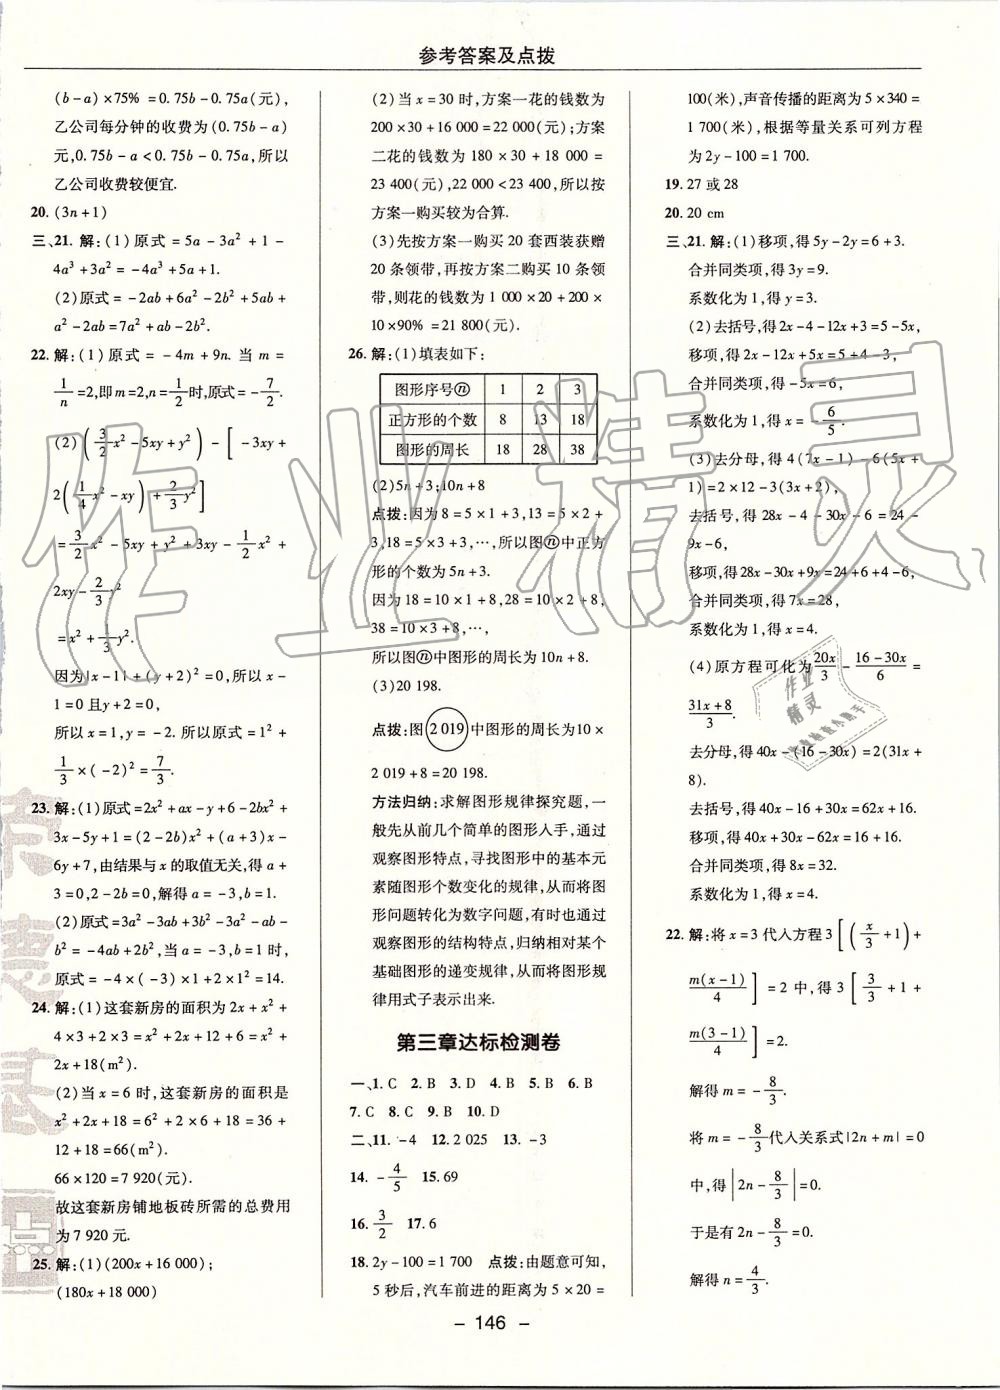 参考答案及点拨
(b-a)×75%=0.75b-0.75a(元),
乙公司每分钟的收费为(0.75b-a)
元,0.75b-a<0.75b-0.75a,所以
乙公司收费较便宜.
20. (3n+1)
三、21. 解:(1)原式=5a-3a²+1-
4a³+3a²=-4a³+5a+1.
(2)原式=-2ab+6a²-2b²+5ab+
a²-2ab=7a²+ab-2b².
22. 解:(1)原式=-4m+9n. 当 m=
1/n=2,即m=2,n=1/2时,原式=-7/2.
(2)(3/2x²-5xy+y²)-[-3xy+
2(1/4x²-xy)+2/3y²]
=3/2x²-5xy+y²+3xy-1/2x²+
2xy-2/3y²
=x²+1/3y².
因为|x-1|+(y+2)²=0,所以 x-
1=0且y+2=0,
所以 x=1,y=-2. 所以原式=1²+
1/3×(-2)²=7/3.
23. 解:(1)原式=2x²+ax-y+6-2bx²+
3x-5y+1=(2-2b)x²+(a+3)x-
6y+7,由结果与 x 的取值无关,得 a+
3=0,2-2b=0,解得 a=-3,b=1.
(2)原式=3a²-3ab+3b²-3a²-ab-
b²=-4ab+2b²,当 a=-3,b=1 时,
原式=-4×(-3)×1+2×1²=14.
24. 解:(1)这套新房的面积为2x+x²+
4×3+2×3=x²+2x+12+6=x²+
2x+18(m²).
(2)当 x=6 时,这套新房的面积是
x²+2x+18=6²+2×6+18=36+
12+18=66(m²).
66×120=7 920(元).
故这套新房铺地板砖所需的总费用
为 7 920 元.
25. 解:(1)(200x+16 000);
(180x+18 000)
(2)当 x=30 时,方案一花的钱数为
200×30+16 000=22 000(元);方案
二花的钱数为 180×30+18 000=
23 400(元),22 000<23 400,所以按
方案一购买较为合算.
(3)先按方案一购买 20 套西装获赠
20 条领带,再按方案二购买 10 条领
带,则花的钱数为 1 000×20+200×
10×90%=21 800(元).
26. 解:(1)填表如下:
图形序号ⓝ 1 2 3
正方形的个数 8 13 18
图形的周长 18 28 38
(2)5n+3;10n+8
点拨:因为 8=5×1+3,13=5×2+
3,18=5×3+3,…,所以图ⓝ中正方
形的个数为 5n+3.
因为 18=10×1+8,28=10×2+8,
38=10×3+8,…,
所以图ⓝ中图形的周长为10n+8.
(3)20 198.
点拨:图2 019中图形的周长为10×
2 019+8=20 198.
方法归纳:求解图形规律探究题,一
般先从前几个简单的图形入手,通过
观察图形特点,寻找图形中的基本元
素随图形个数变化的规律,从而将图
形问题转化为数字问题,有时也通过
观察图形的结构特点,归纳相对某个
基础图形的递变规律,从而将图形规
律用式子表示出来.
第三章达标检测卷
一、1. C 2. B 3. D 4. B 5. B 6. B
7. C 8. C 9. B 10. D
二、11. -4 12. 2 025 13. -3
14. -4/5 15. 69
16. 3/2 17. 6
18. 2y-100=1 700 点拨:由题意可知,
5 秒后,汽车前进的距离为 5×20=
100(米),声音传播的距离为 5×340=
1 700(米),根据等量关系可列方程
为 2y-100=1 700.
19. 27 或 28
20. 20 cm
三、21. 解:(1)移项,得 5y-2y=6+3.
合并同类项,得 3y=9.
系数化为 1,得 y=3.
(2)去括号,得 2x-4-12x+3=5-5x,
移项,得 2x-12x+5x=5+4-3,
合并同类项,得-5x=6,
系数化为 1,得 x=-6/5.
(3)去分母,得 4(7x-1)-6(5x+
1)=2×12-3(3x+2),
去括号,得 28x-4-30x-6=24-
9x-6,
移项,得 28x-30x+9x=24+6+4-6,
合并同类项,得 7x=28,
系数化为 1,得 x=4.
(4)原方程可化为20x/3-(16-30x)/6=
(31x+8)/3.
去分母,得 40x-(16-30x)=2(31x+
8).
去括号,得 40x-16+30x=62x+16.
移项,得 40x+30x-62x=16+16.
合并同类项,得 8x=32.
系数化为 1,得 x=4.
22. 解:将 x=3 代入方程 3[(x/3+1)+
m(x-1)/4]=2 中,得 3[3/3+1+
m(3-1)/4]=2.
解得 m=-8/3.
将 m=-8/3代入关系式|2n+m|=0
中,得|2n-8/3|=0.
于是有 2n-8/3=0.
解得 n=4/3.
- 146 -
作业精灵
作业
精灵